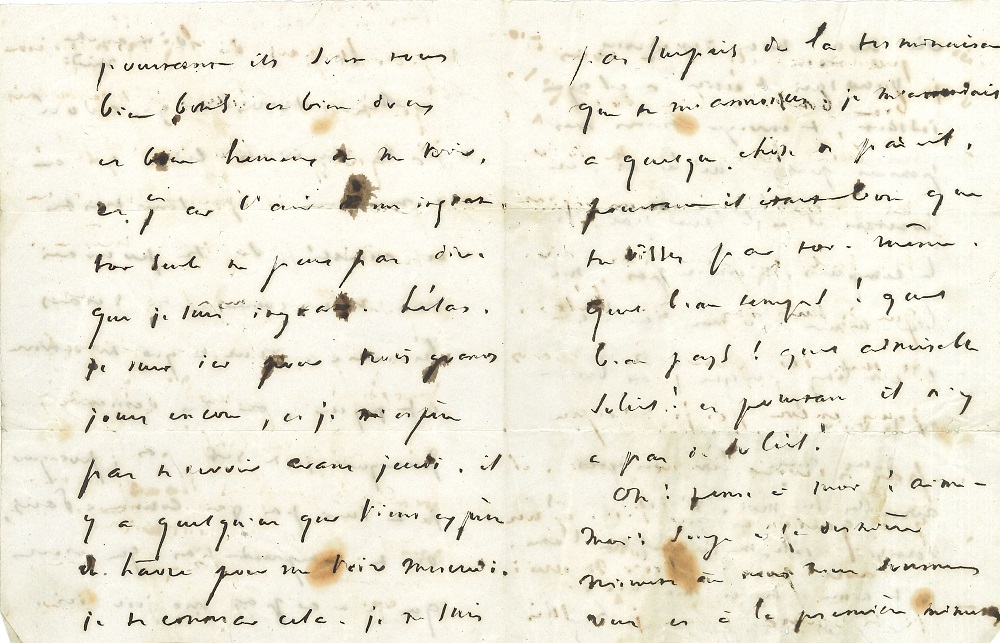 pourtant ils sont tous
bien bons et bien doux
et bien heureux de me voir,
et j'ai l'air d'un ingrat.
toi seule ne peux pas dire
que je suis ingrat. hélas,
je suis ici pour trois grands
jours encore, et je n'espère
pas te revoir avant jeudi. il
y a quelqu'un qui vient exprès
du hâvre pour me voir mercredi.
je te conterai cela. je ne suis
pas surpris de la terminaison
que tu m'annonces, je m'attendais
à quelque chose de pareil,
pourtant il était bon que
tu visses par toi-même.
quel beau temps ! quel
beau pays ! quel admirable
soleil ! et pourtant il n'y
a pas de soleil !
Oh ! pense à moi ! aime-
moi ! songe à la dernière
minute où nous nous sommes
vus et à la première minute